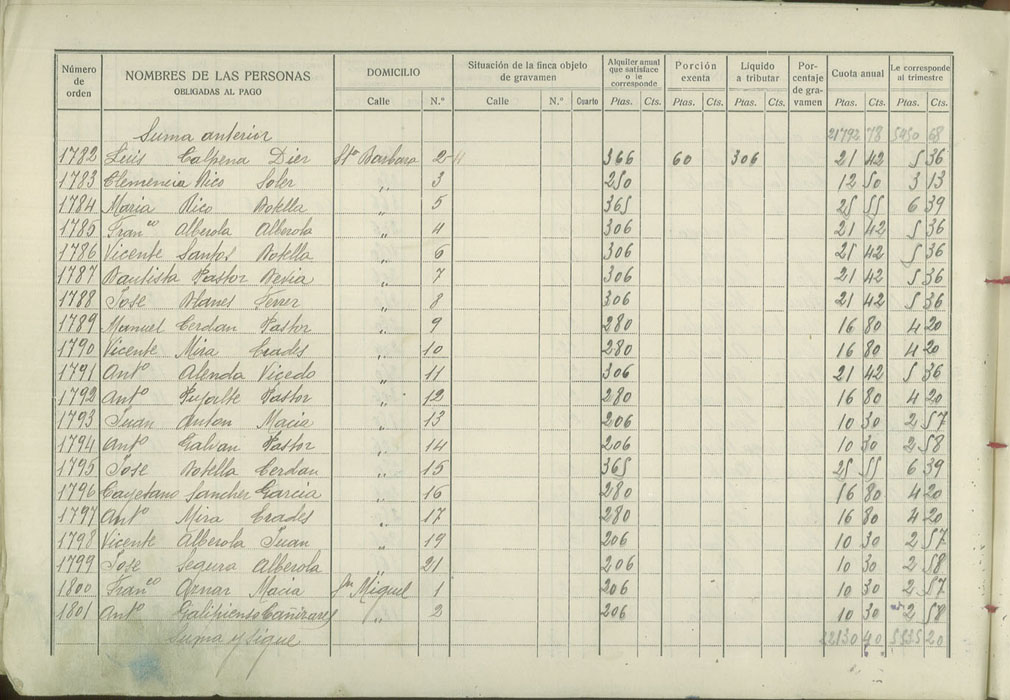 Número de orden NOMBRES DE LAS PERSONAS OBLIGADAS AL PAGO DOMICILIO Situación de la finca objeto de gravamen Alquiler anual que satisface o le corresponde Porción exenta Líquido a tributar Por-centaje de gra-vamen Cuota anual Le corresponde al trimestre
Calle N.º Calle N.º Cuarto Ptas. Cts. Ptas. Cts. Ptas. Cts. Ptas. Cts. Ptas. Cts.
Suma anterior 21792 78 5450 68
1782 Luis Calpena Dier Sta Barbara 2 366 60 306 21 42 5 36
1783 Clemencia Rico Soler " 3 250 12 50 3 13
1784 Maria Rico Botella " 5 365 25 55 6 39
1785 Franco Alberola Alberola " 4 306 21 42 5 36
1786 Vicente Santos Botella " 6 306 21 42 5 36
1787 Bautista Pastor Bevia " 7 306 21 42 5 36
1788 Jose Blanes Ferrer " 8 306 21 42 5 36
1789 Manuel Cerdan Pastor " 9 280 16 80 4 20
1790 Vicente Mira Crades " 10 280 16 80 4 20
1791 Anto Alenda Vicedo " 11 306 21 42 5 36
1792 Anto Pujalte Pastor " 12 280 16 80 4 20
1793 Juan Anton Macia " 13 206 10 30 2 57
1794 Anto Galvan Pastor " 14 206 10 30 2 58
1795 Jose Botella Cerdan " 15 365 25 55 6 39
1796 Cayetano Sancher Garcia " 16 280 16 80 4 20
1797 Anto Mira Crades " 17 280 16 80 4 20
1798 Vicente Alberola Juan " 19 206 10 30 2 57
1799 Jose Segura Alberola " 21 206 10 30 2 58
1800 Franco Aznar Macia Sn Miguel 1 206 10 30 2 57
1801 Anto Galipienso Cañizares " 2 206 10 30 2 58
Suma y sigue 22130 40 5535 20